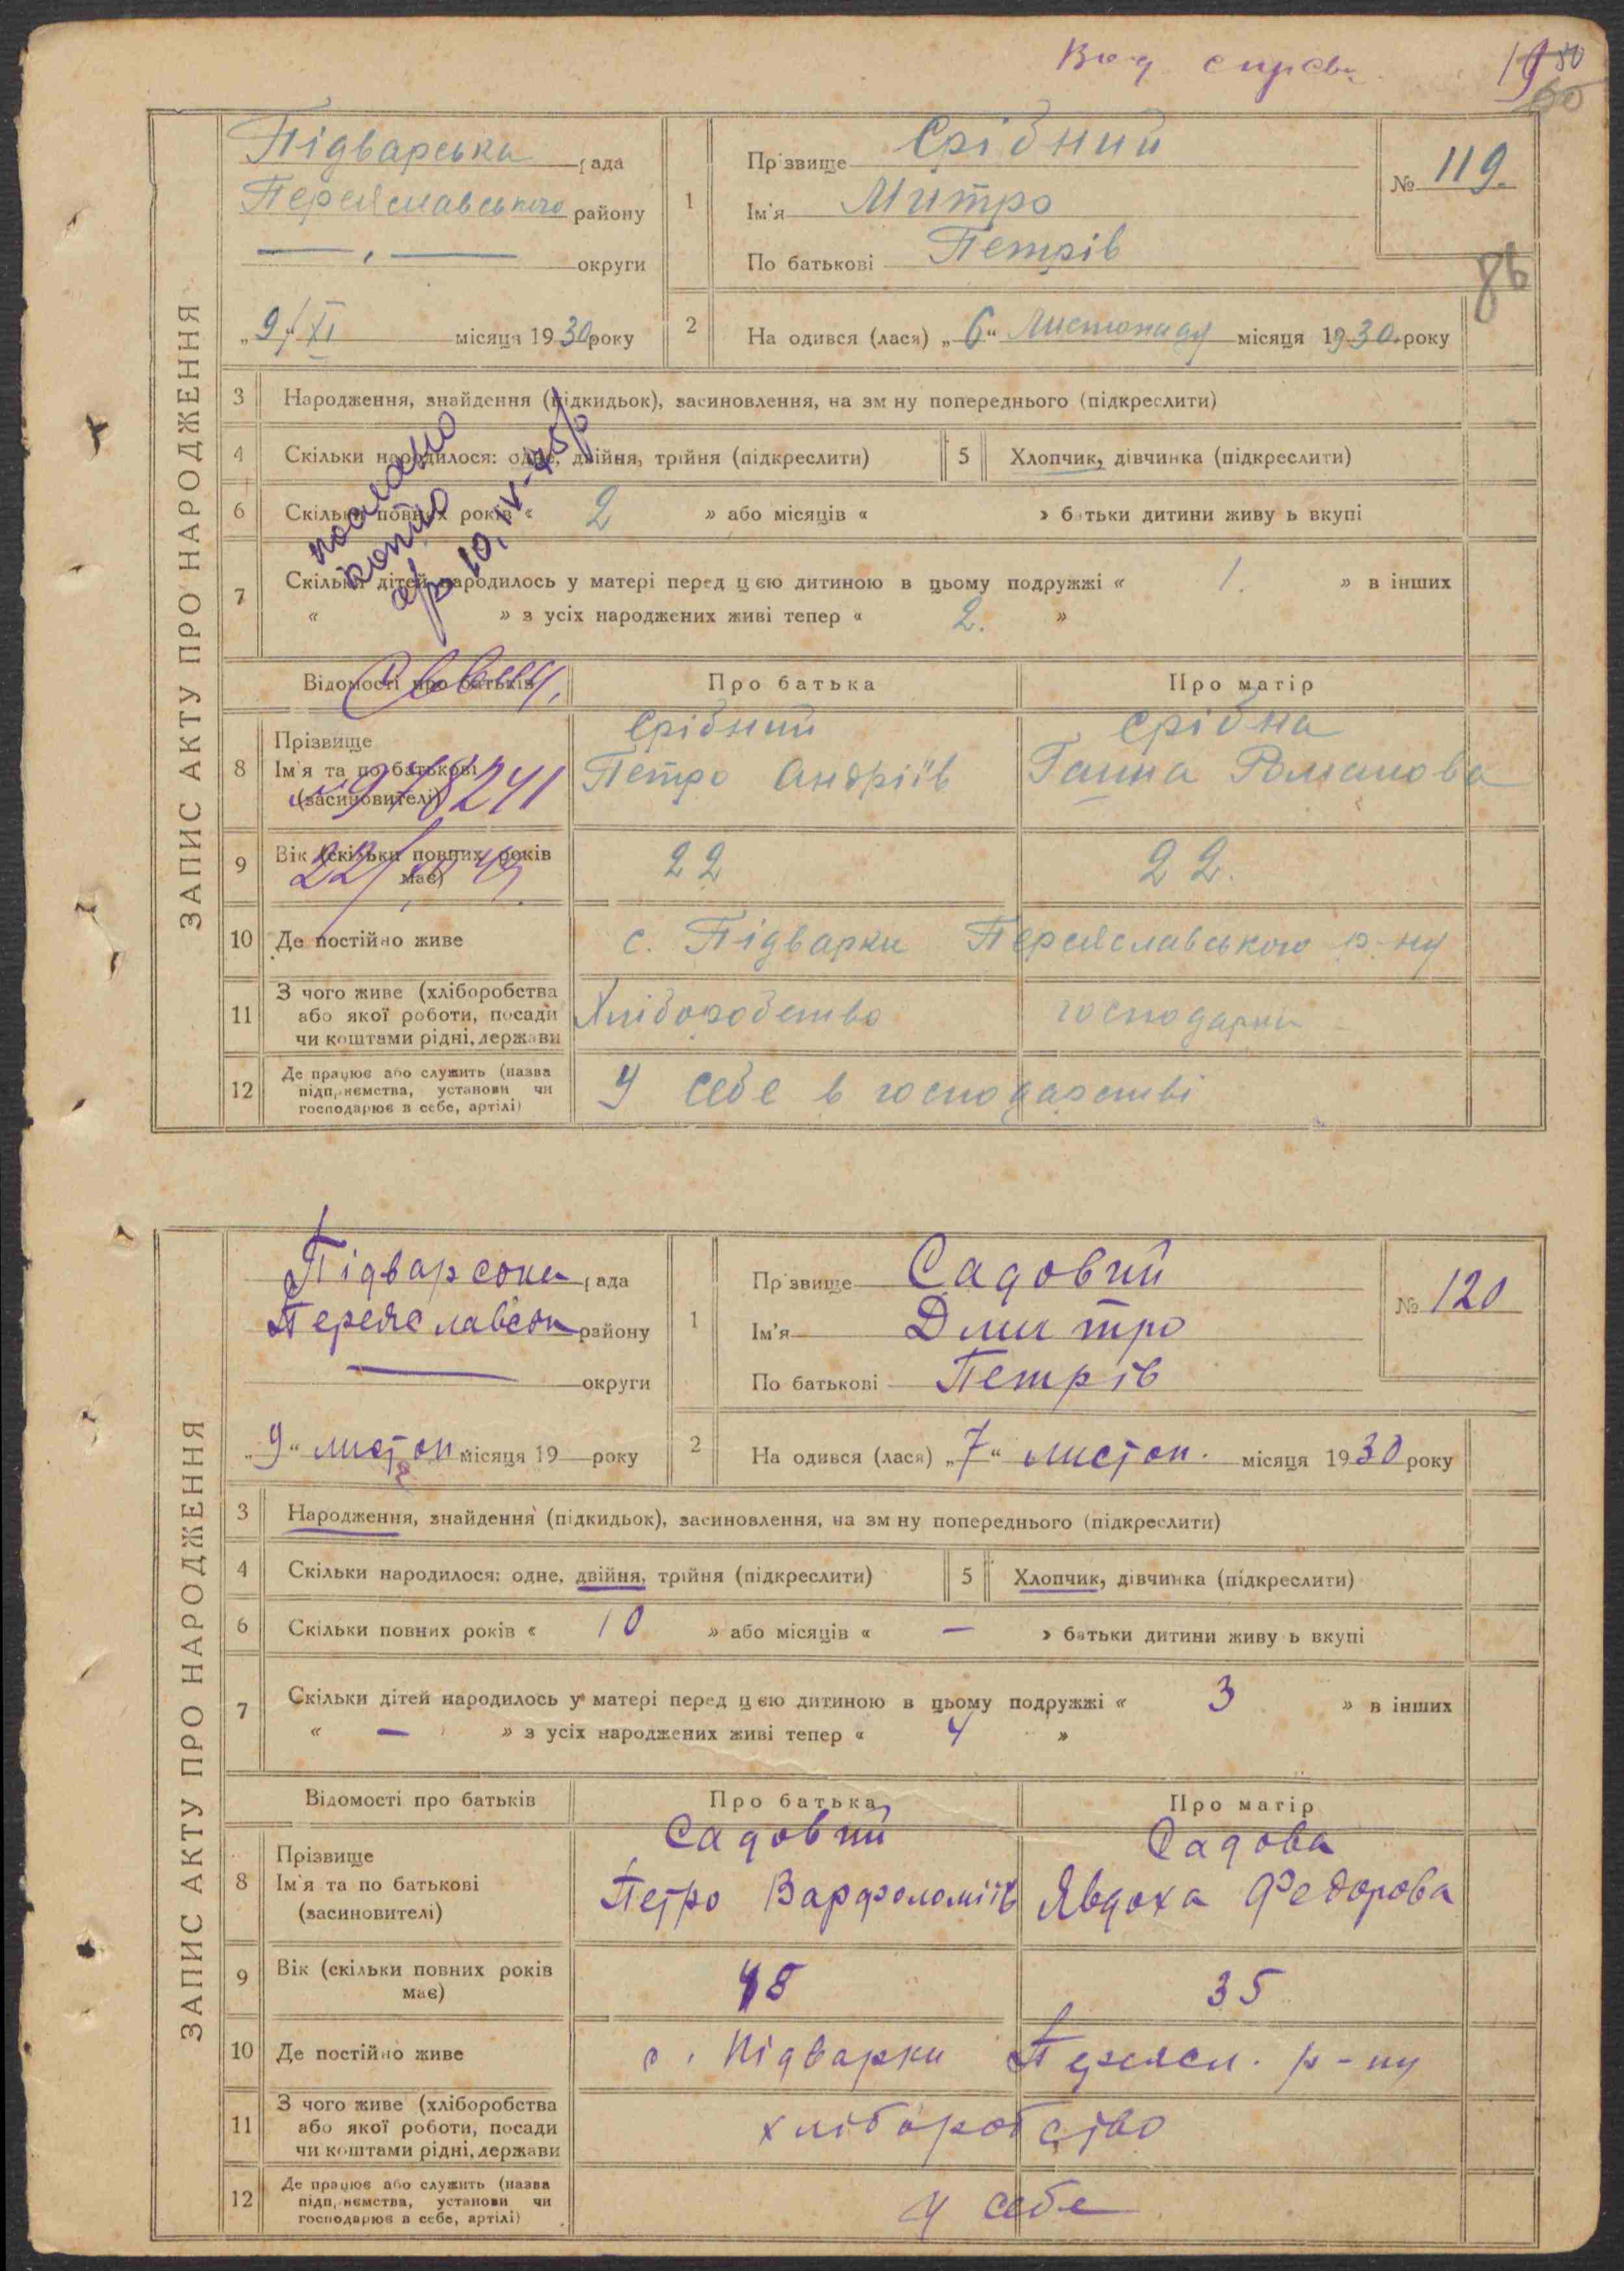 ЗАПИС АКТУ ПРО НАРОДЖЕННЯ
Підварська рада
Переяславського району
— , — округи
„9/XI місяця 1930 року
1 Прізвище Срібний
Ім'я Митро
По батькові Петрів
№ 119.
86
2 На одився (лася) „6“ Листопаду місяця 1930 року
3 Народження, знайдення (підкидьок), засиновлення, на зм ну попереднього (підкреслити)
4 Скільки народилося: одне, двійня, трійня (підкреслити)
5 Хлопчик, дівчинка (підкреслити)
6 Скільки повних років « 2 » або місяців « » батьки дитини живу ь вкупі
7 Скільки дітей народилось у матері перед цією дитиною в цьому подружжі « 1. » в інших
« » з усіх народжених живі тепер « 2. »
послано
копію
10, IV-45р
Відомості про батьків
Про батька
Про матір
8 Прізвище
Ім'я та по батькові
(засиновителі)
Срібний
Петро Андріїв
Срібна
Ганна Романова
9 Вік (скільки повних років
має)
22
22.
10 Де постійно живе
с. Підварки Переяславського р-ну
11 З чого живе (хліборобства
або якої роботи, посади
чи коштами рідні, держави
Хліборобство
господарки
12 Де працює або служить (назва
підприємства, установи чи
господарює в себе, артілі)
У себе в господарстві
ЗАПИС АКТУ ПРО НАРОДЖЕННЯ
Підварсока рада
Переяславсок району
— округи
„9“ листоп місяця 19 року
1 Прізвище Садовий
Ім'я Дмитро
По батькові Петрів
№ 120
2 На одився (лася) „7“ листоп. місяця 1930 року
3 Народження, знайдення (підкидьок), засиновлення, на зм ну попереднього (підкреслити)
4 Скільки народилося: одне, двійня, трійня (підкреслити)
5 Хлопчик, дівчинка (підкреслити)
6 Скільки повних років « 10 » або місяців « — » батьки дитини живу ь вкупі
7 Скільки дітей народилось у матері перед цією дитиною в цьому подружжі « 3 » в інших
« — » з усіх народжених живі тепер « 4 »
Відомості про батьків
Про батька
Про матір
8 Прізвище
Ім'я та по батькові
(засиновителі)
Садовий
Петро Варфоломіїв
Садова
Явдоха Федорова
9 Вік (скільки повних років
має)
48
35
10 Де постійно живе
с. Підварки Переясл. р-ну
11 З чого живе (хліборобства
або якої роботи, посади
чи коштами рідні, держави
хліборобство
12 Де працює або служить (назва
підприємства, установи чи
господарює в себе, артілі)
у себе